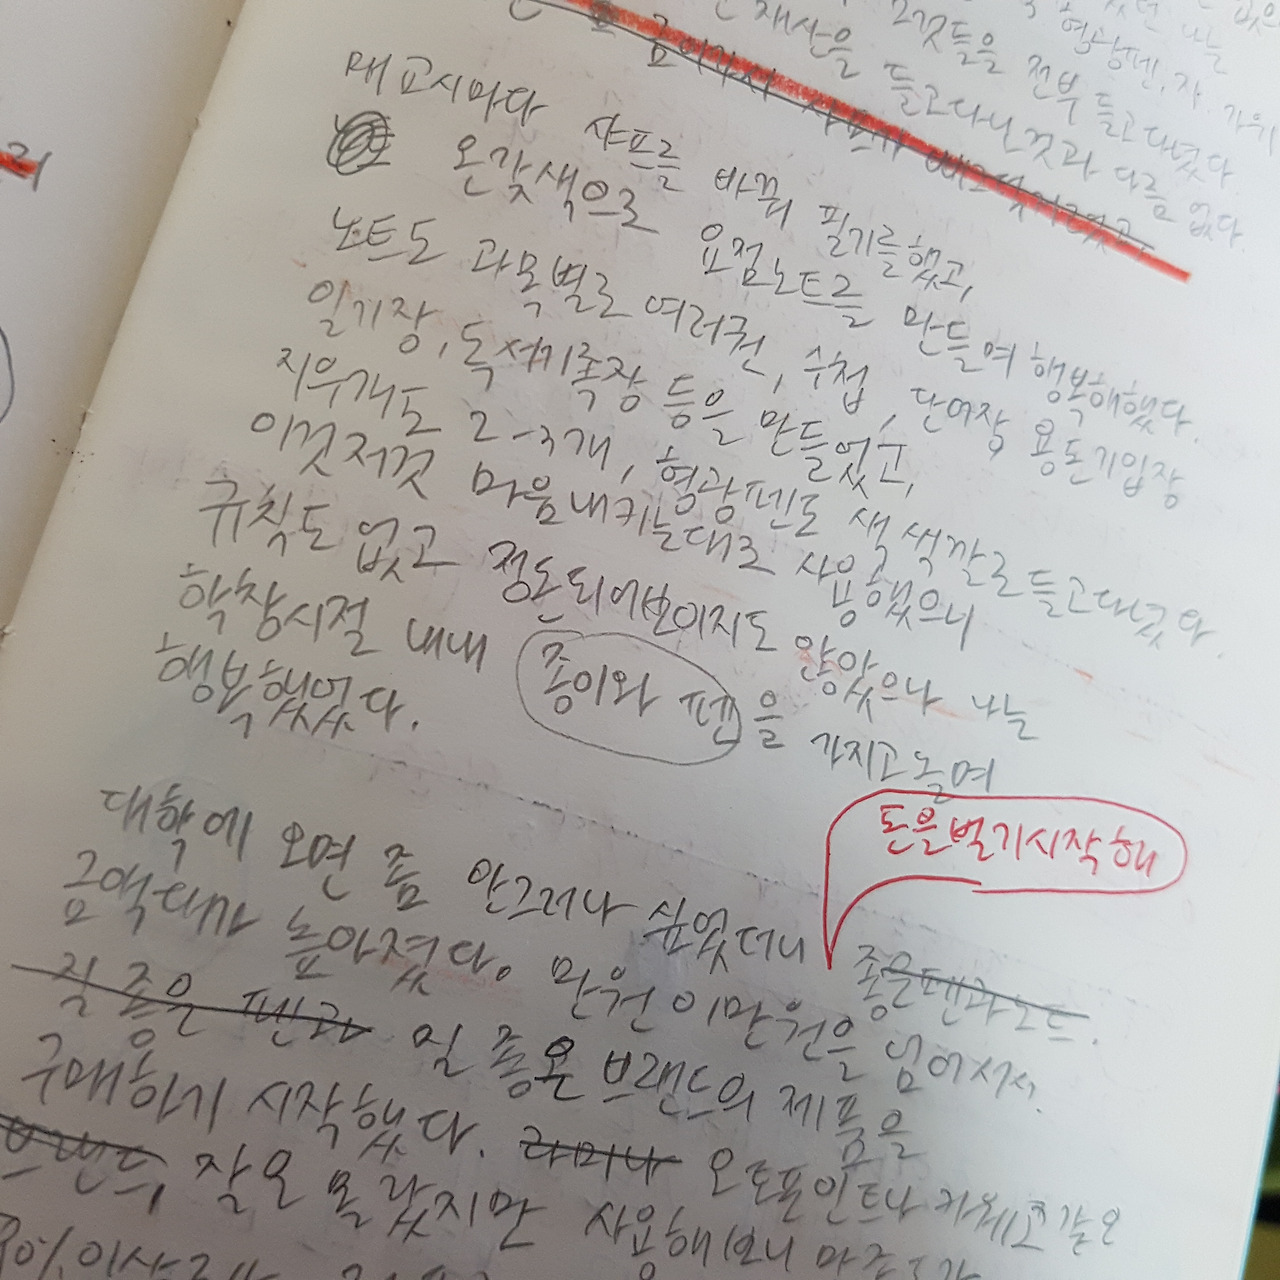 그것들을 전부 들고다녔다.
재산을 들고다닌것과 다름 없다.
매 교시마다 샤프를 바꿔 필기를했고,
온갖색으로 요점노트를 만들며 행복해했다.
노트도 과목별로 여러권, 수첩, 단어장 용돈기입장
일기장, 독서기록장 등을 만들었고,
지우개도 2-3개, 형광펜도 색색깔로들고다녔다.
이것저것 마음내키는대로 사용했으니
규칙도 없고 정돈되어보이지도 않았으나 나는
학창시절 내내 종이와 펜을 가지고놀며
행복했었다.
돈을벌기시작해
대학에 오면 좀 안그러나 싶었더니 좋은펜과노트.
금액대가 높아졌다. 만원 이만원을 넘어서서
질 좋은 펜과 질 좋은 브랜드의 제품을
구매하기 시작했다. 라미나 로트링이트나
브랜드 잘은 몰랐지만 사용해보니
90% 이상